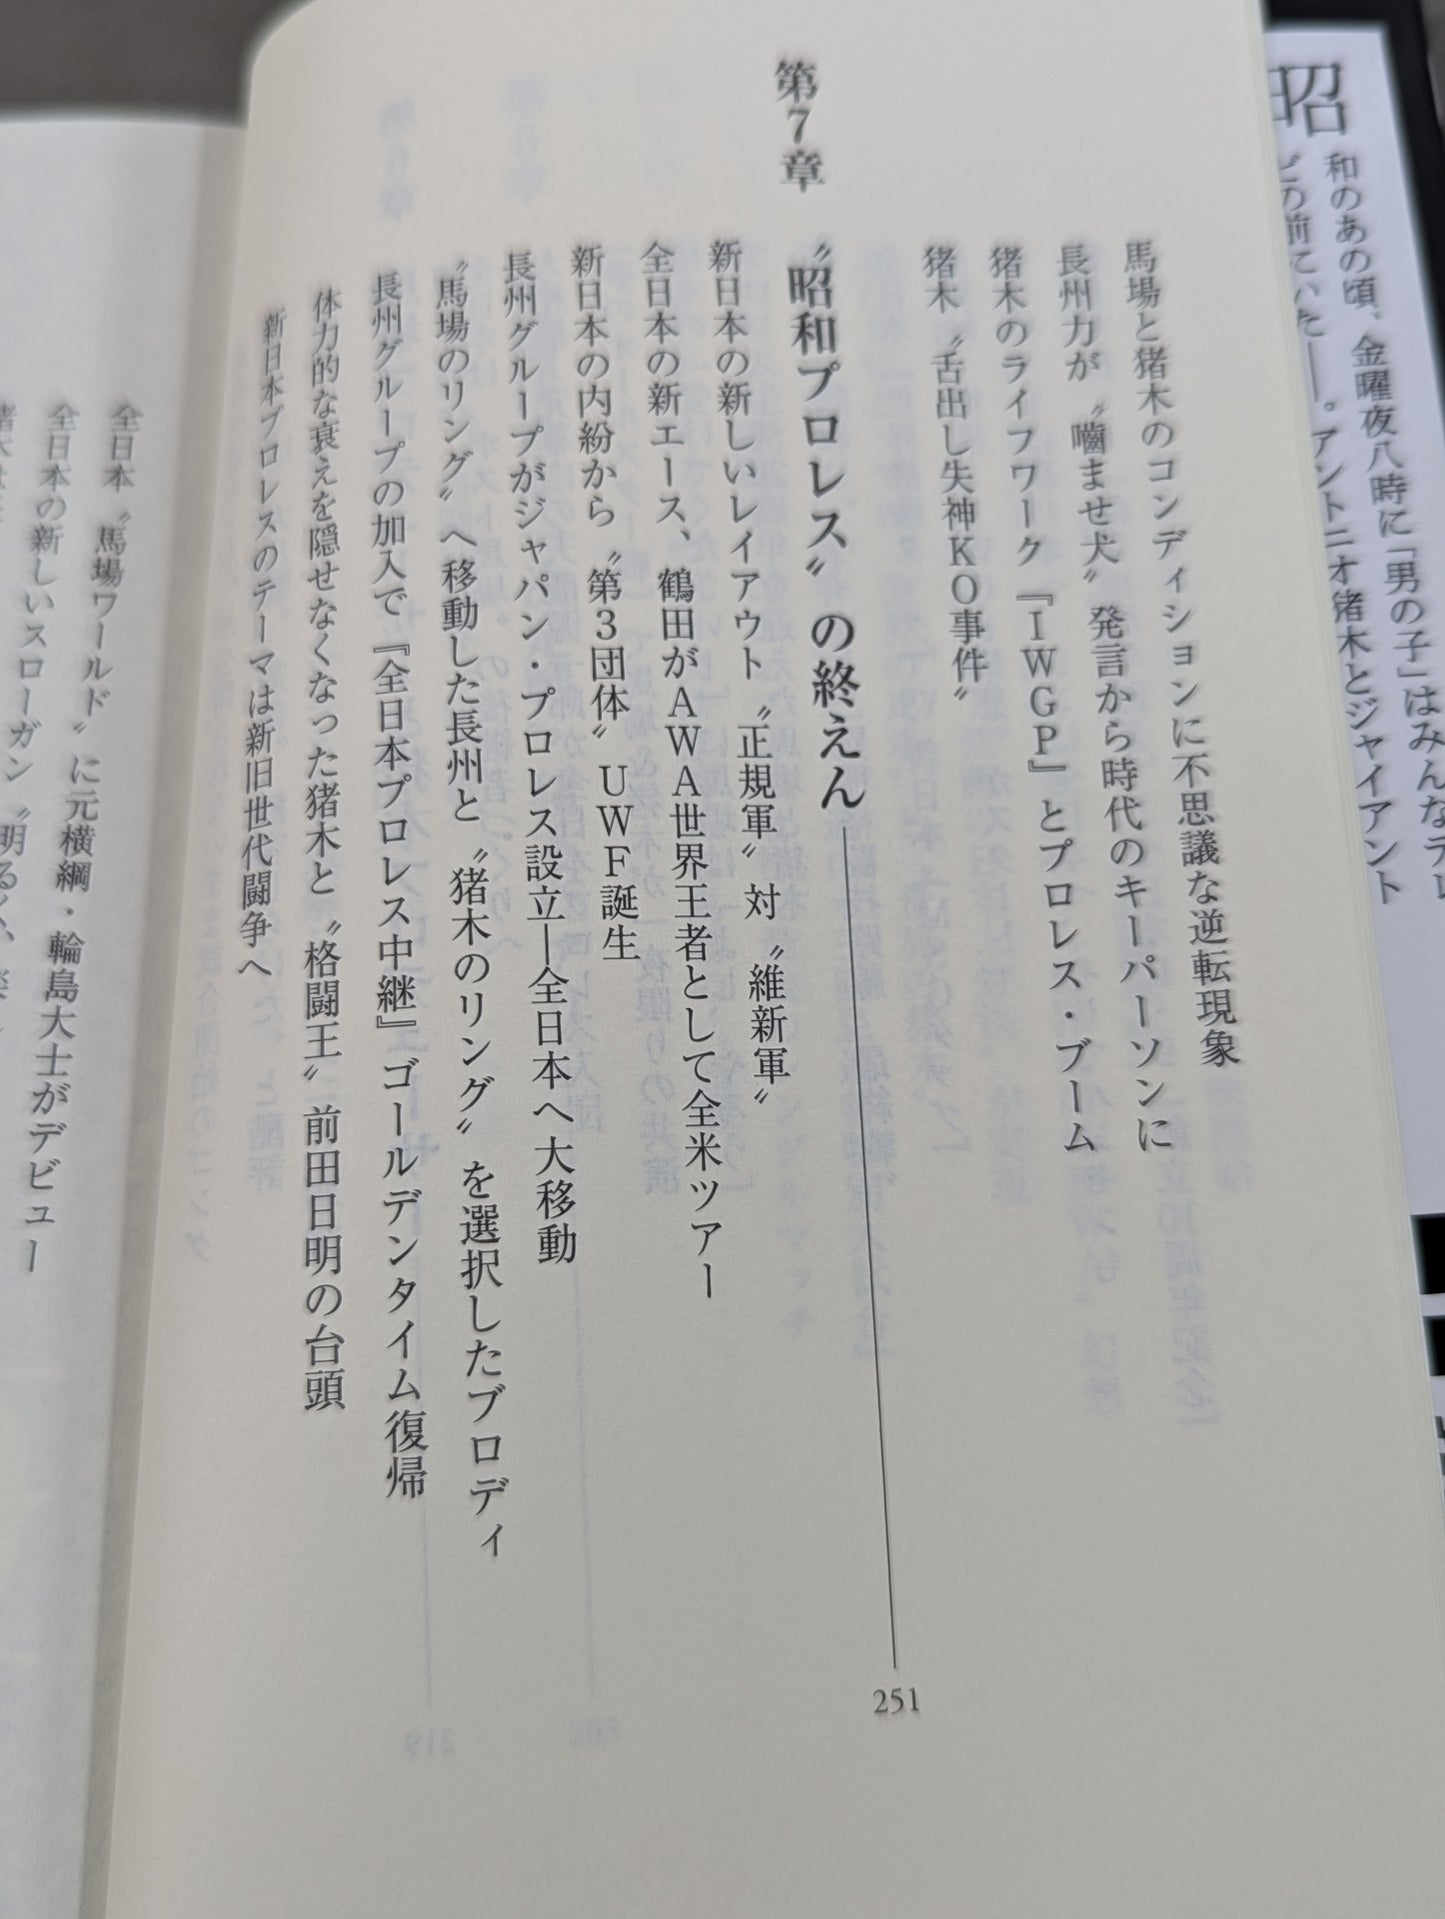 昭
和のあの頃、金曜夜八時に「男の子」はみんなテレ
ビの前にいた——。アントニオ猪木とジャイアント
馬場と猪木のコンディションに不思議な逆転現象
長州力が〝嚙ませ犬〟発言から時代のキーパーソンに
猪木のライフワーク『IWGP』とプロレス・ブーム
猪木〝舌出し失神KO事件〟
第7章
〝昭和プロレス〟の終えん
251
新日本の新しいレイアウト〝正規軍〟対〝維新軍〟
全日本の新エース、鶴田がAWA世界王者として全米ツアー
新日本の内紛から〝第3団体〟UWF誕生
長州グループがジャパン・プロレス設立—全日本へ大移動
〝馬場のリング〟へ移動した長州と〝猪木のリング〟を選択したブロディ
長州グループの加入で『全日本プロレス中継』ゴールデンタイム復帰
体力的な衰えを隠せなくなった猪木と〝格闘王〟前田日明の台頭
新日本プロレスのテーマは新旧世代闘争へ
全日本〝馬場ワールド〟に元横綱・輪島大士がデビュー
全日本の新しいスローガン〝明るく、楽し